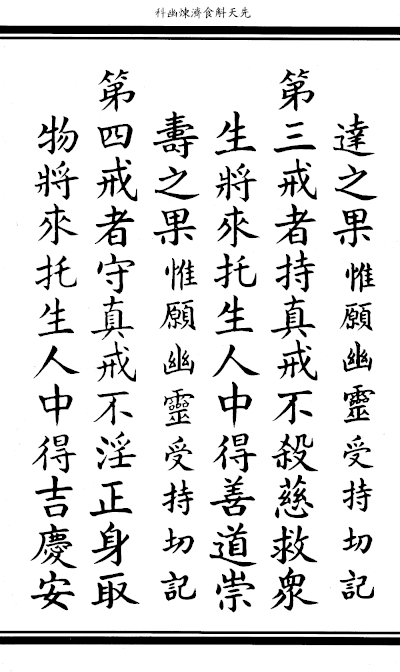 先天斛食濟煉幽科
達之果惟願幽靈受持切記
第三戒者持真戒不殺慈救衆
生將來托生人中得善道崇
壽之果惟願幽靈受持切記
第四戒者守真戒不淫正身取
物將來托生人中得吉慶安